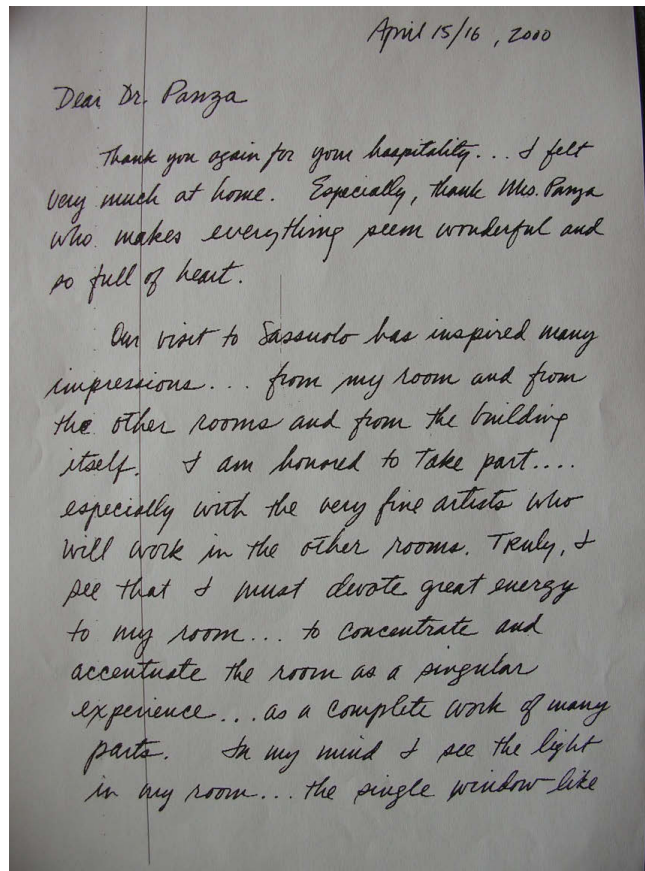 April 15/16, 2000
Dear Dr. Panza
Thank you again for your hospitality... I felt
very much at home. Especially, thank Mrs. Panza
who makes everything seem wonderful and
so full of heart.
Our visit to Sassuolo has inspired many
impressions... from my room and from
the other rooms and from the building
itself. I am honored to take part....
especially with the very fine artists who
will work in the other rooms. Truly, I
see that I must devote great energy
to my room... to concentrate and
accentuate the room as a singular
experience... as a complete work of many
parts. In my mind I see the light
in my room... the single window like